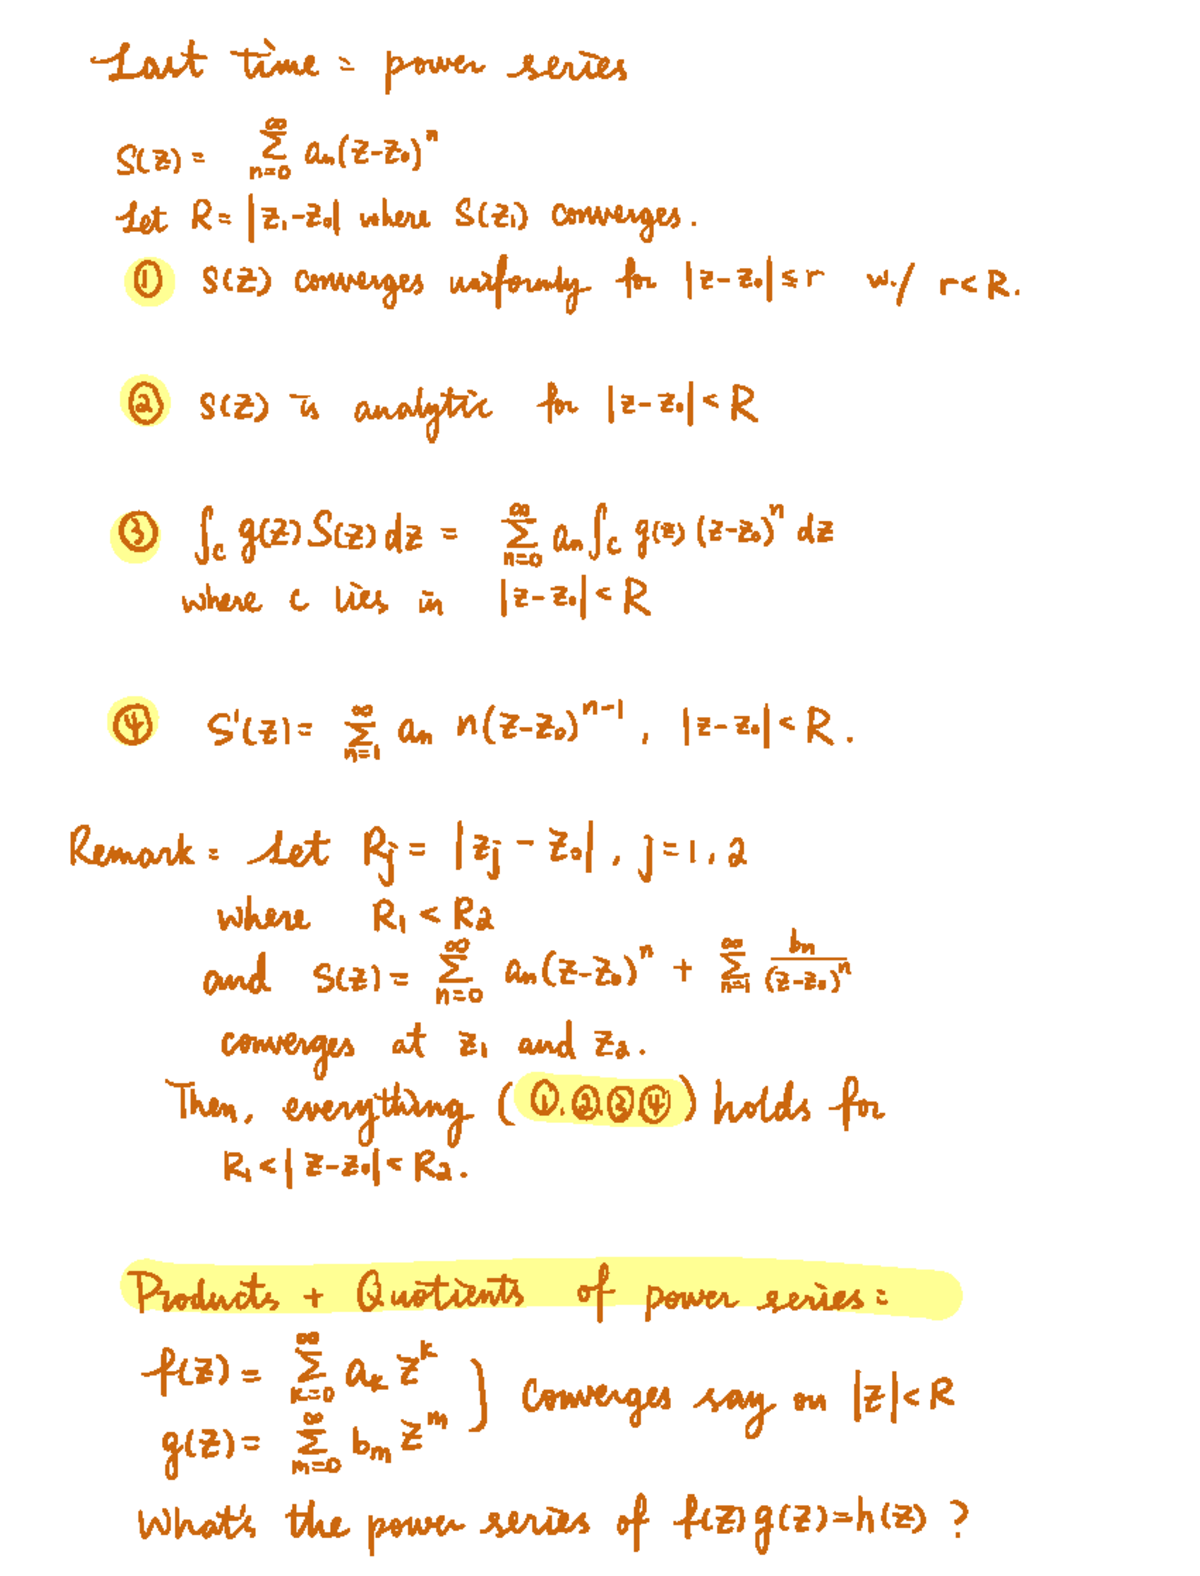 Last time: power series
S(z) = ∑_{n=0}^{∞} a_n(z-z_0)^n
Let R = |z_1-z_0| where S(z_1) converges.
① S(z) converges uniformly for |z-z_0| ≤ r w./ r<R.
② S(z) is analytic for |z-z_0| < R
③ ∫_C g(z) S(z) dz = ∑_{n=0}^{∞} a_n ∫_C g(z) (z-z_0)^n dz
where C lies in |z-z_0| < R
④ S'(z) = ∑_{n=1}^{∞} a_n n(z-z_0)^{n-1}, |z-z_0| < R.
Remark: Let R_j = |z_j - z_0|, j=1,2
where R_1 < R_2
and S(z) = ∑_{n=0}^{∞} a_n(z-z_0)^n + ∑_{n=1}^{∞} b_n/(z-z_0)^n
converges at z_1 and z_2.
Then, everything (①.②.③.④) holds for
R_1 < |z-z_0| < R_2.
Products + Quotients of power series:
f(z) = ∑_{k=0}^{∞} a_k z^k
g(z) = ∑_{m=0}^{∞} b_m z^m } Converges say on |z|<R
What's the power series of f(z)g(z)=h(z)?